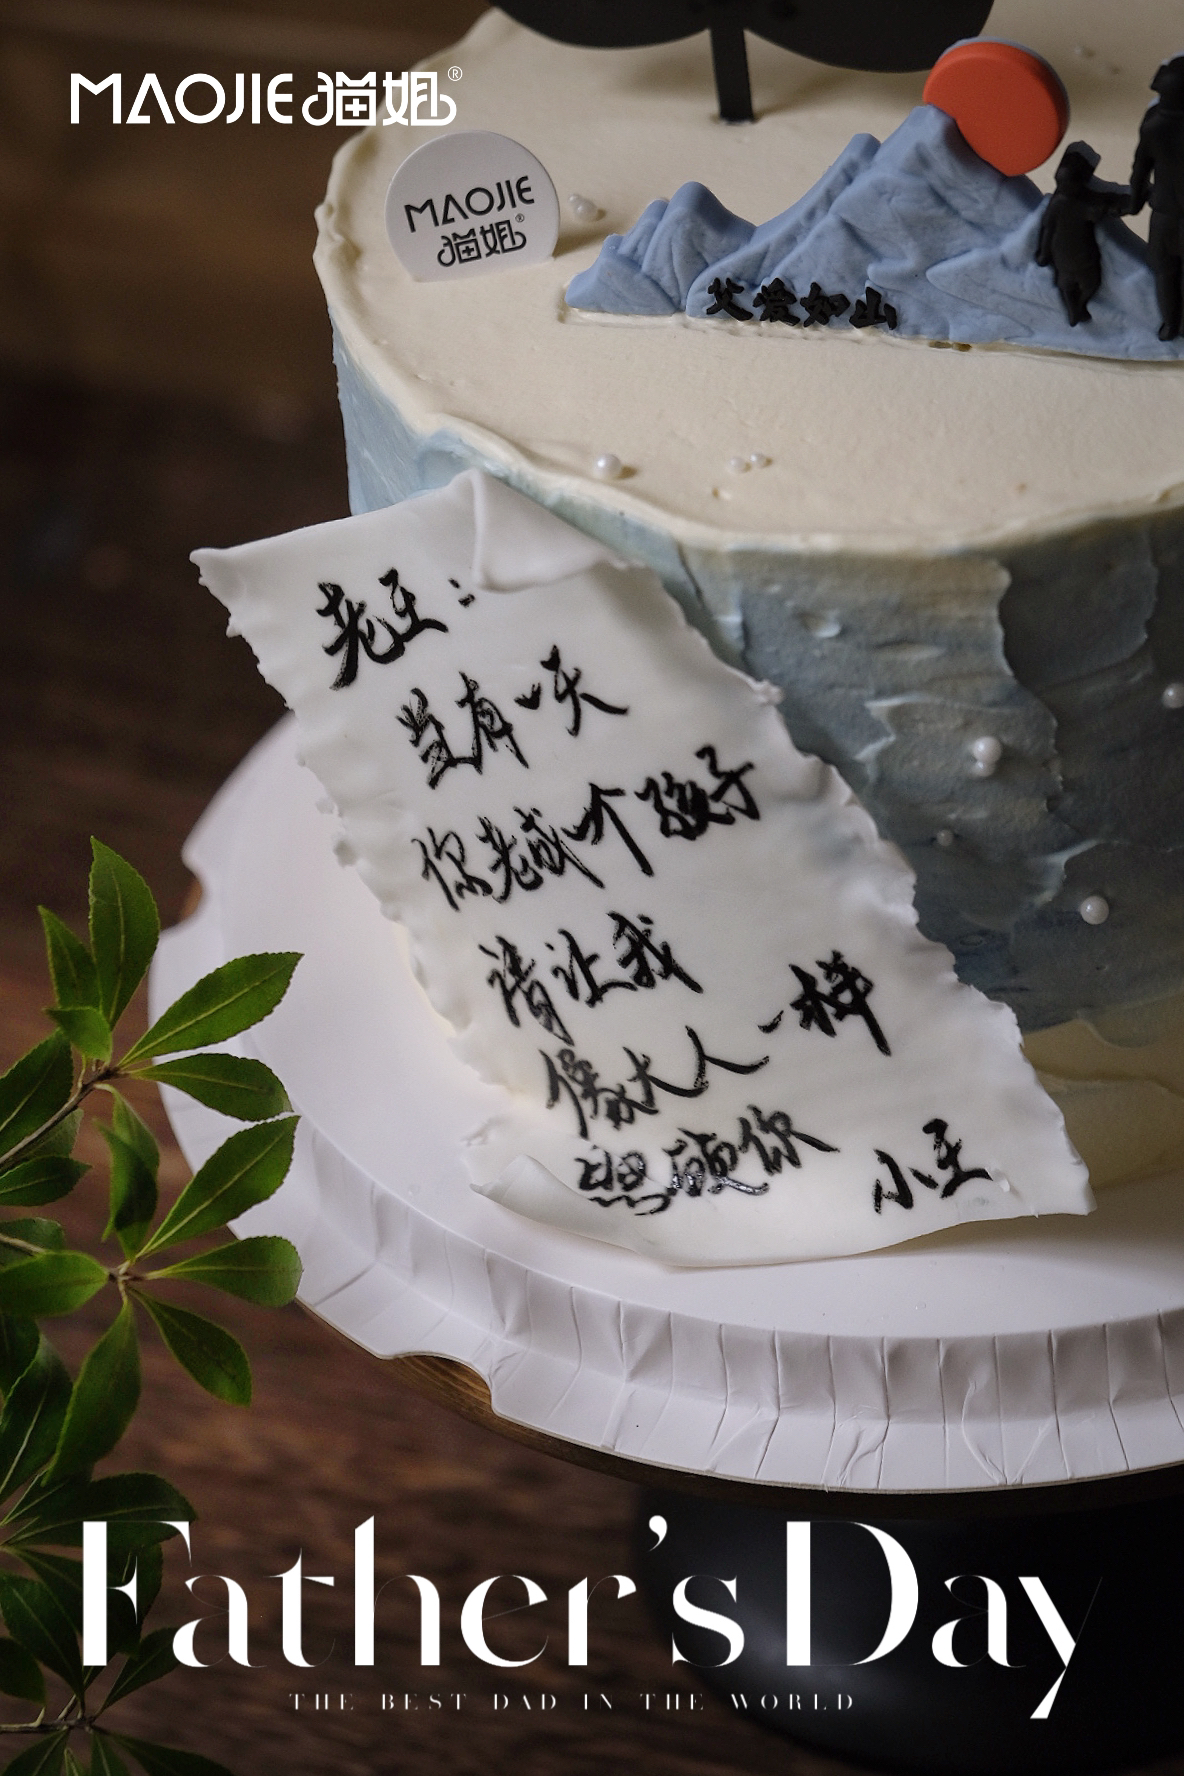 MAOJIE猫姐®
MAOJIE
猫姐®
父爱如山
老王：
当有一天
你老成一个孩子
请让我
像大人一样
照顾你
小王
Father's Day
THE BEST DAD IN THE WORLD